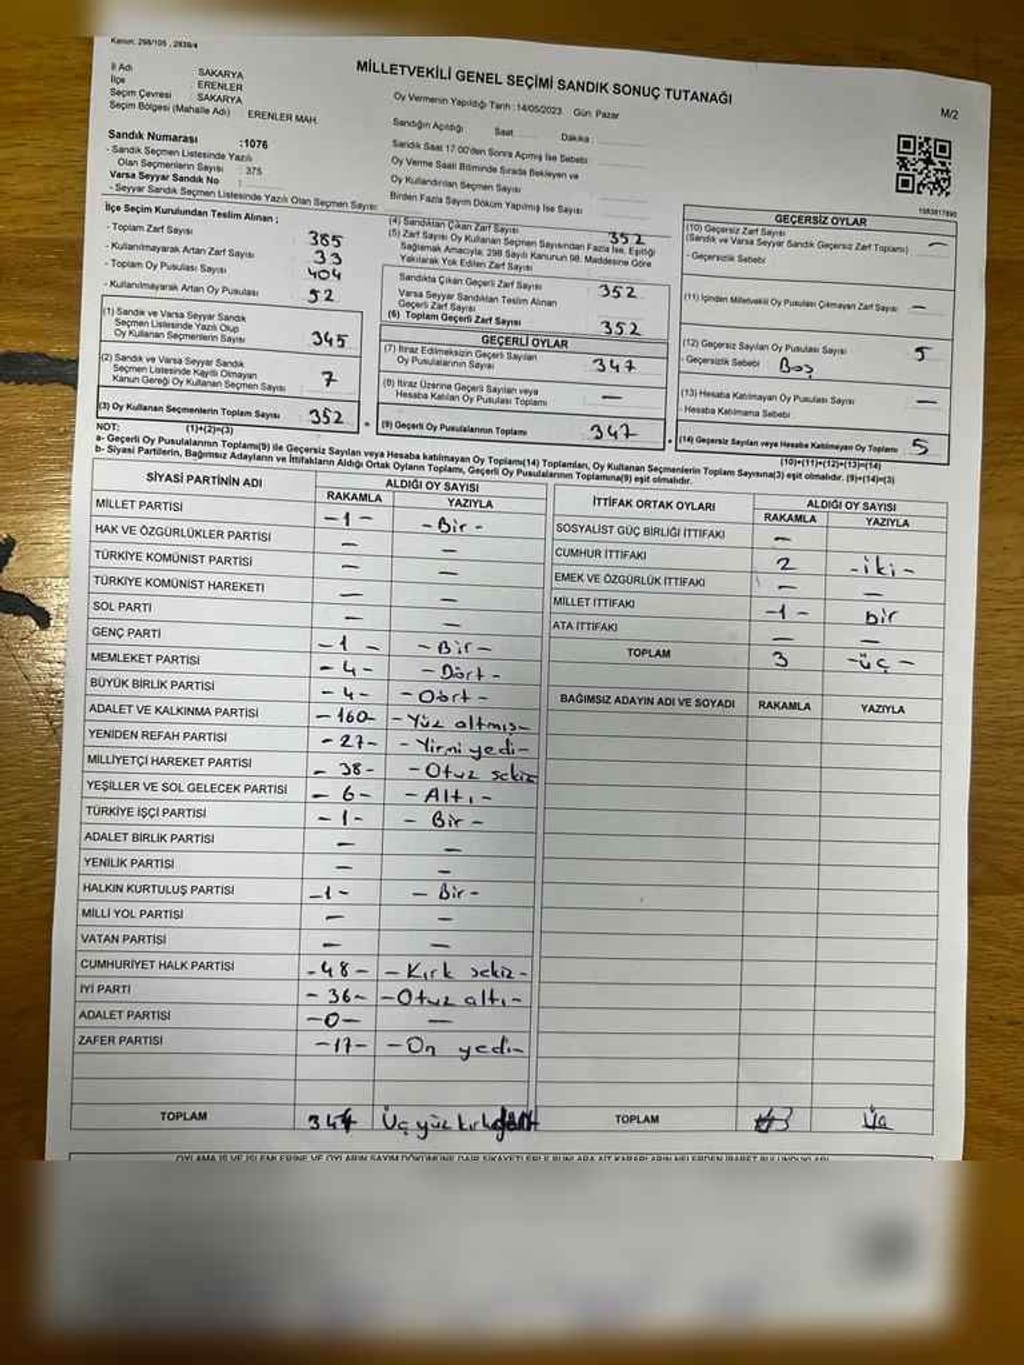 Kanun: 298/105 , 2839/4
MİLLETVEKİLİ GENEL SEÇİMİ SANDIK SONUÇ TUTANAĞI
M/2
İl Adı SAKARYA
İlçe ERENLER
Seçim Çevresi SAKARYA
Seçim Bölgesi (Mahalle Adı) ERENLER MAH.
Oy Vermenin Yapıldığı Tarih : 14/05/2023 Gün: Pazar
Sandığın Açıldığı Saat ...... Dakika : ......
Sandık Saat 17.00'den Sonra Açılmış İse Sebebi
Oy Verme Saati Bitiminde Sırada Bekleyen ve
Oy Kullandırılan Seçmen Sayısı
Birden Fazla Sayım Döküm Yapılmış İse Sayısı
Sandık Numarası :1076
- Sandık Seçmen Listesinde Yazılı
Olan Seçmenlerin Sayısı : 375
Varsa Seyyar Sandık No :
- Seyyar Sandık Seçmen Listesinde Yazılı Olan Seçmen Sayısı:
İlçe Seçim Kurulundan Teslim Alınan ;
- Toplam Zarf Sayısı 385
- Kullanılmayarak Artan Zarf Sayısı 33
- Toplam Oy Pusulası Sayısı 404
- Kullanılmayarak Artan Oy Pusulası 52
(1) Sandık ve Varsa Seyyar Sandık
Seçmen Listesinde Yazılı Olup
Oy Kullanan Seçmenlerin Sayısı 345
(2) Sandık ve Varsa Seyyar Sandık
Seçmen Listesinde Kayıtlı Olmayan
Kanun Gereği Oy Kullanan Seçmen Sayısı 7
(3) Oy Kullanan Seçmenlerin Toplam Sayısı 352
(1)+(2)=(3)
(4) Sandıktan Çıkan Zarf Sayısı 352
(5) Zarf Sayısı Oy Kullanan Seçmen Sayısından Fazla İse, Eşitliği
Sağlamak Amacıyla, 298 Sayılı Kanunun 98. Maddesine Göre
Yakılarak Yok Edilen Zarf Sayısı
Sandıkta Çıkan Geçerli Zarf Sayısı 352
Varsa Seyyar Sandıktan Teslim Alınan
Geçerli Zarf Sayısı
(6) Toplam Geçerli Zarf Sayısı 352
GEÇERLİ OYLAR
(7) İtiraz Edilmeksizin Geçerli Sayılan
Oy Pusulalarının Sayısı 347
(8) İtiraz Üzerine Geçerli Sayılan veya
Hesaba Katılan Oy Pusulası Toplamı —
(9) Geçerli Oy Pusulalarının Toplamı 347
GEÇERSİZ OYLAR
(10) Geçersiz Zarf Sayısı —
(Sandık ve Varsa Seyyar Sandık Geçersiz Zarf Toplamı)
- Geçersizlik Sebebi
(11) İçinden Milletvekili Oy Pusulası Çıkmayan Zarf Sayısı —
(12) Geçersiz Sayılan Oy Pusulası Sayısı 5
- Geçersizlik Sebebi Boş
(13) Hesaba Katılmayan Oy Pusulası Sayısı —
- Hesaba Katılmama Sebebi
(14) Geçersiz Sayılan veya Hesaba Katılmayan Oy Toplamı 5
(10)+(11)+(12)+(13)=(14)
NOT:
a- Geçerli Oy Pusulalarının Toplamı(9) ile Geçersiz Sayılan veya Hesaba katılmayan Oy Toplamı(14) Toplamları, Oy Kullanan Seçmenlerin Toplam Sayısına(3) eşit olmalıdır. (9)+(14)=(3)
b- Siyasi Partilerin, Bağımsız Adayların ve İttifakların Aldığı Ortak Oyların Toplamı, Geçerli Oy Pusulalarının Toplamına(9) eşit olmalıdır.
SİYASİ PARTİNİN ADI ALDIĞI OY SAYISI
RAKAMLA YAZIYLA
MİLLET PARTİSİ -1- -Bir-
HAK VE ÖZGÜRLÜKLER PARTİSİ — —
TÜRKİYE KOMÜNİST PARTİSİ — —
TÜRKİYE KOMÜNİST HAREKETİ — —
SOL PARTİ — —
GENÇ PARTİ -1- -Bir-
MEMLEKET PARTİSİ -4- -Dört-
BÜYÜK BİRLİK PARTİSİ -4- -Dört-
ADALET VE KALKINMA PARTİSİ -160- -Yüz altmış-
YENİDEN REFAH PARTİSİ -27- -Yirmi yedi-
MİLLİYETÇİ HAREKET PARTİSİ -38- -Otuz sekiz
YEŞİLLER VE SOL GELECEK PARTİSİ -6- -Altı-
TÜRKİYE İŞÇİ PARTİSİ -1- -Bir-
ADALET BİRLİK PARTİSİ — —
YENİLİK PARTİSİ — —
HALKIN KURTULUŞ PARTİSİ -1- -Bir-
MİLLİ YOL PARTİSİ — —
VATAN PARTİSİ — —
CUMHURİYET HALK PARTİSİ -48- -Kırk sekiz-
İYİ PARTİ -36- -Otuz altı-
ADALET PARTİSİ -0- —
ZAFER PARTİSİ -17- -On yedi-
TOPLAM Üç yüz kırk
İTTİFAK ORTAK OYLARI ALDIĞI OY SAYISI
RAKAMLA YAZIYLA
SOSYALİST GÜÇ BİRLİĞİ İTTİFAKI —
CUMHUR İTTİFAKI 2 -iki-
EMEK VE ÖZGÜRLÜK İTTİFAKI — —
MİLLET İTTİFAKI -1- bir
ATA İTTİFAKI — —
TOPLAM 3 -üç-
BAĞIMSIZ ADAYIN ADI VE SOYADI RAKAMLA YAZIYLA
TOPLAM 3 Üç